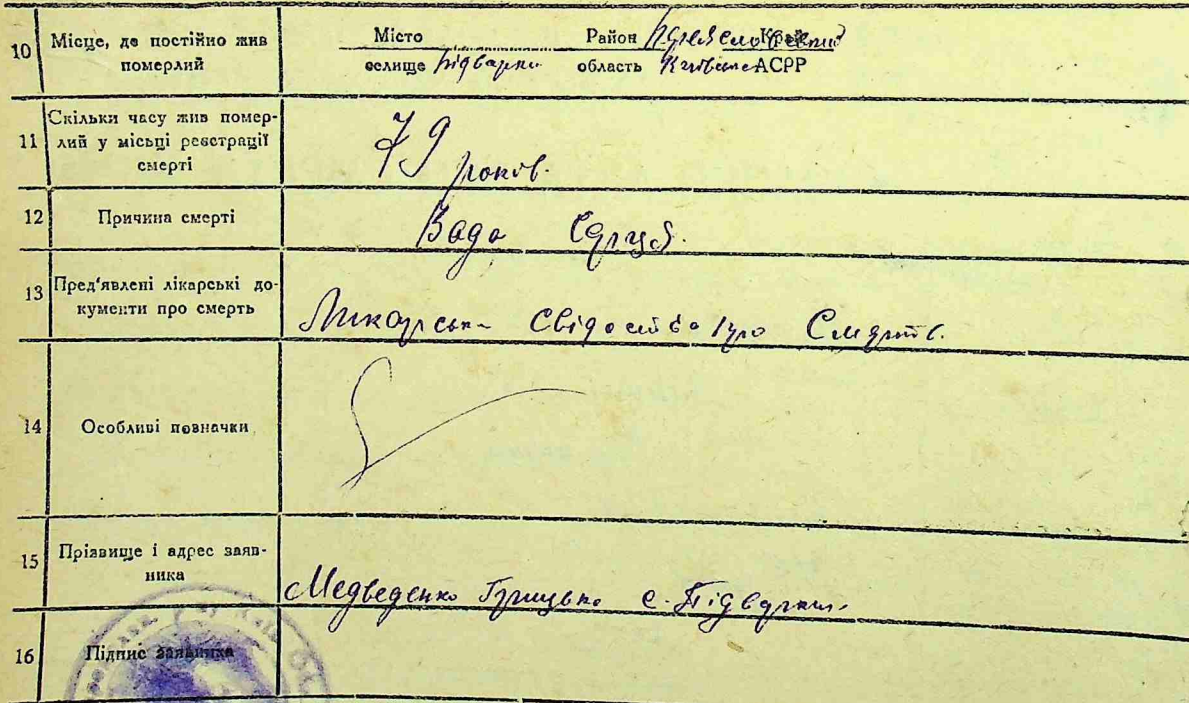 10 Місце, де постійно жив померлий
Місто Район Переяславський Край
селище Підварки область Київська АСРР
11 Скільки часу жив помер-
лий у місьці реєстрації
смерті
79 років.
12 Причина смерті
Вада Серця.
13 Пред'явлені лікарські до-
кументи про смерть
Ликарськи Свідоства про Смерть.
14 Особливі позначки
15 Прізвище і адрес заяв-
ника
Медведенко Грицько с. Підварки.
16 Підпис заявника